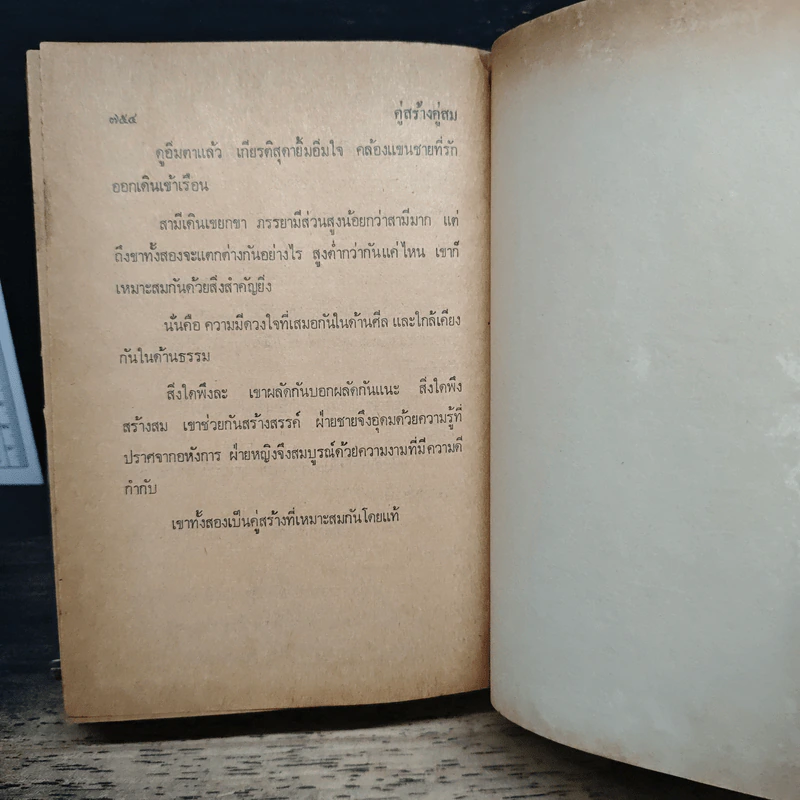 ๗๕๔ คู่สร้างคู่สม
ดูอิ่มตาแล้ว เกียรติสุดายิ้มอิ่มใจ คล้องแขนชายที่รัก
ออกเดินเข้าเรือน
สามีเดินเขยกขา ภรรยามีส่วนสูงน้อยกว่าสามีมาก แต่
ถึงขาทั้งสองจะแตกต่างกันอย่างไร สูงต่ำกว่ากันแค่ไหน เขาก็
เหมาะสมกันด้วยสิ่งสำคัญยิ่ง
นั่นคือ ความมีดวงใจที่เสมอกันในด้านศีล และใกล้เคียง
กันในด้านธรรม
สิ่งใดพึงละ เขาผลัดกันบอกผลัดกันแนะ สิ่งใดพึง
สร้างสม เขาช่วยกันสร้างสรรค์ ฝ่ายชายจึงอุดมด้วยความรู้ที่
ปราศจากอหังการ ฝ่ายหญิงจึงสมบูรณ์ด้วยความงามที่มีความดี
กำกับ
เขาทั้งสองเป็นคู่สร้างที่เหมาะสมกันโดยแท้